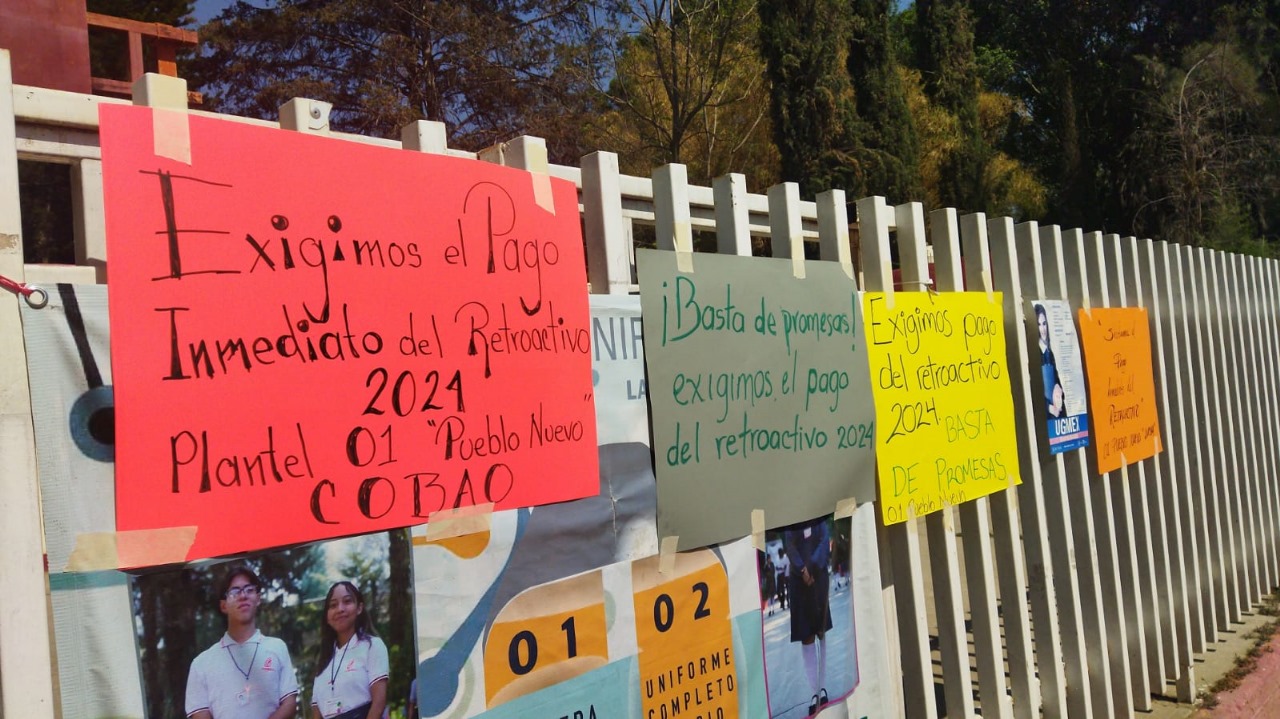 Exigimos el Pago
Inmediato del Retroactivo
2024
Plantel 01 "Pueblo Nuevo"
COBAO
¡Basta de promesas!
exigimos el pago
del retroactivo 2024
Exigimos pago
del retroactivo
2024. BASTA
DE PROMESAS
01 Pueblo Nuevo
UGMEX
Pago
del
RETROACTIVO"
UNIF
LA
01
02
UNIFORME
COMPLETO